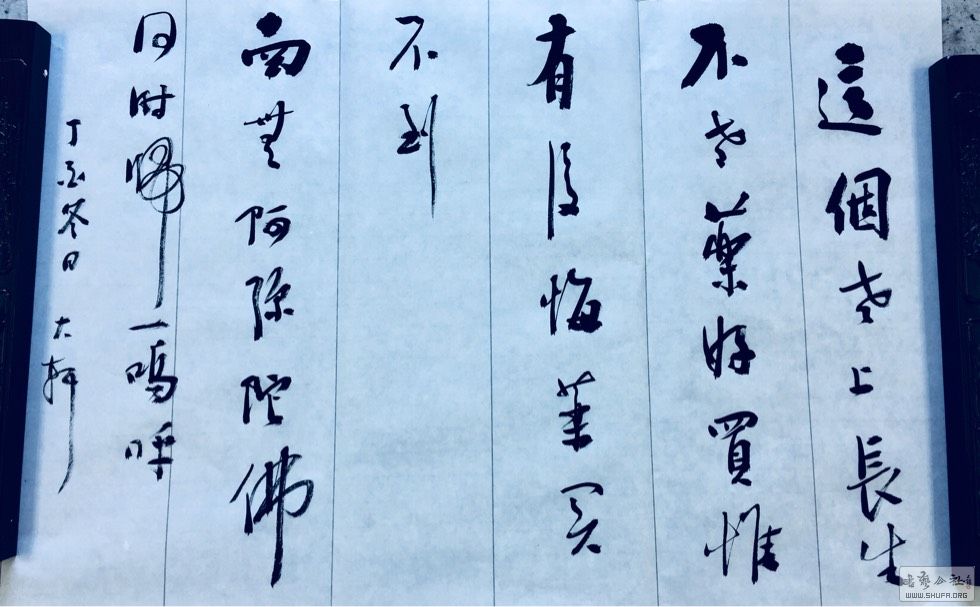 這個世上長生
不老藥好買惟
有後悔藥買
不到
南無阿彌陀佛
同時歸一嗚呼
丁酉冬日 大軒
書藝公社
WWW.SHUFA.ORG